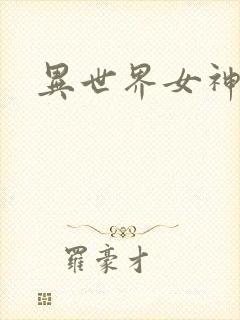 異世界女神
羅豪才